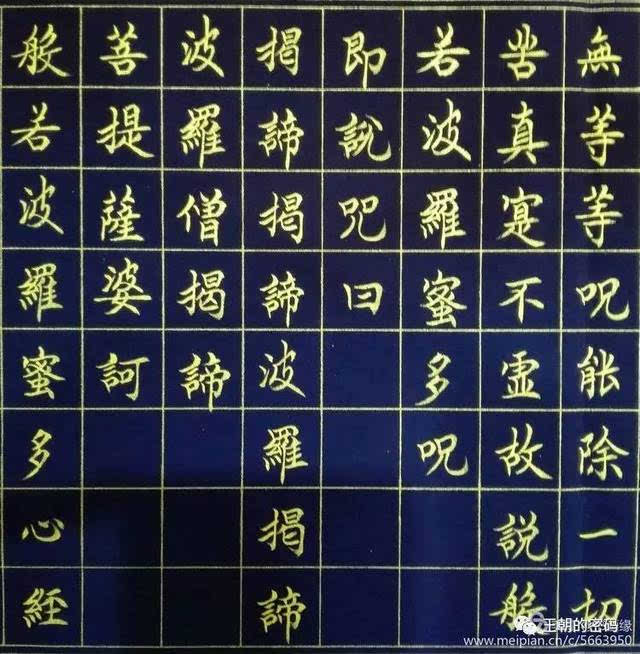 無等等呪能除一切
苦真寔不虛故說般
若波羅蜜多呪
即說咒曰
揭諦揭諦波羅揭諦
波羅僧揭諦
菩提薩婆訶
般若波羅蜜多心經
王朝的密码
www.meipian.cn/c/5663950